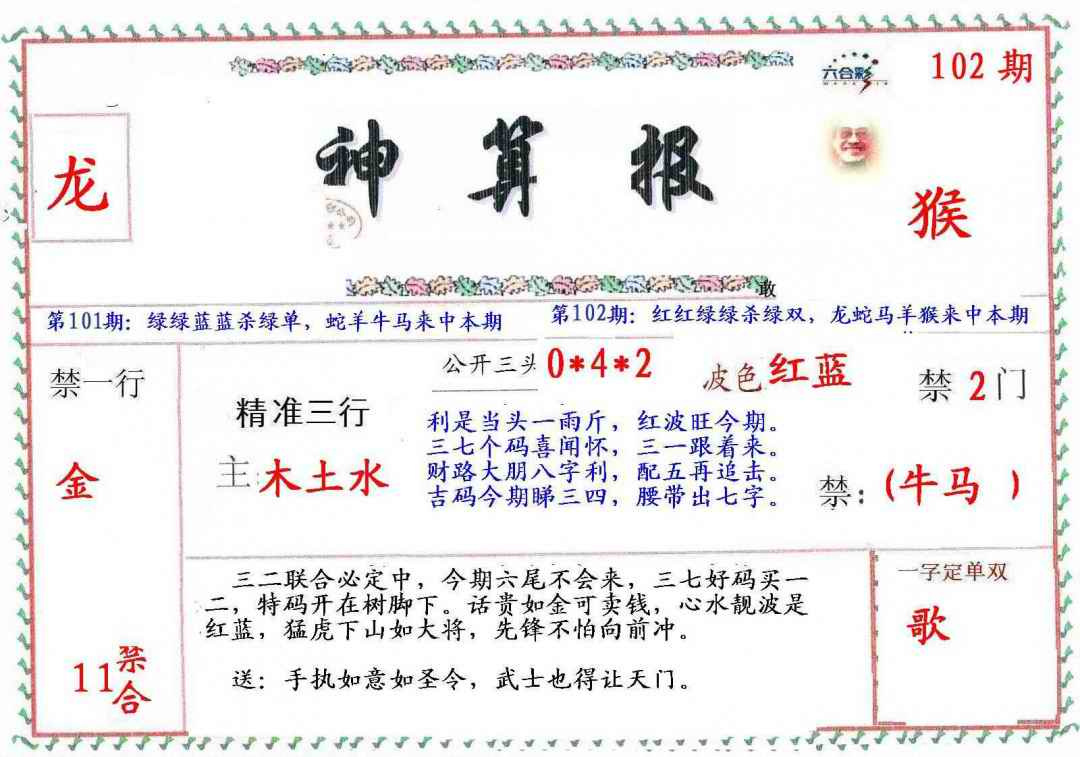 六合彩
102 期
龙
神算报
猴
敢
第101期：绿绿蓝蓝杀绿单，蛇羊牛马来中本期
第102期：红红绿绿杀绿双，龙蛇马羊猴来中本期
禁一行
金
11禁合
精准三行
主:木土水
公开三头0*4*2
波色红蓝
禁2门
利是当头一雨斤，红波旺今期。
三七个码喜闻怀，三一跟着来。
财路大朋八字利，配五再追击。
吉码今期睇三四，腰带出七字。
禁：（牛马 ）
三二联合必定中，今期六尾不会来，三七好码买一
二，特码开在树脚下。话贵如金可卖钱，心水靓波是
红蓝，猛虎下山如大将，先锋不怕向前冲。
送：手执如意如圣令，武士也得让天门。
一字定单双
歌